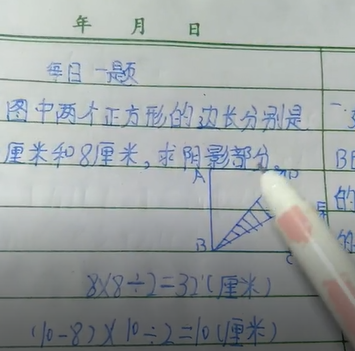 年 月 日
每日一题
图中两个正方形的边长分别是
厘米和8厘米,求阴影部分
A
B
8×8÷2=32(厘米)
(10-8)×10÷2=10(厘米)